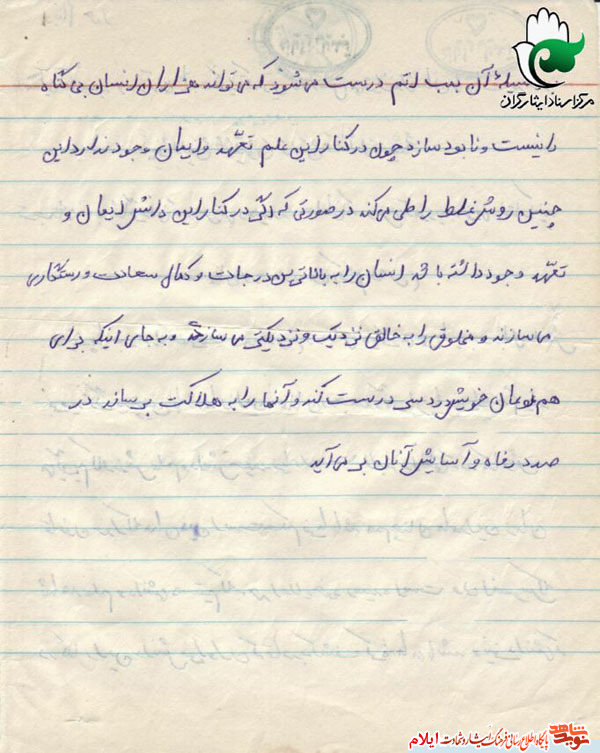 مرکز اسناد ایثارگران
وسیله آن بمب اتم درست می شود که می تواند هزاران انسان بی گناه
را نیست و نابود سازد چون در کنار این علم تعهد و ایمان وجود ندارد این
چنین روش غلط را طی می کند در صورتی که اگر در کنار این دانش ایمان و
تعهد وجود داشته باشد انسان را به بالاترین درجات و کمال سعادت و رستگاری
می سازند و مخلوق را به خالق نزدیک و نزدیکتر می سازد و به جای اینکه برای
هم نوعان خویش دردسر درست کند و آنها را به هلاکت برساند در
صدد رفاه و آسایش آنان بر می آید
نوید شاهد
پایگاه اطلاع رسانی فرهنگ ایثار و شهادت ایلام